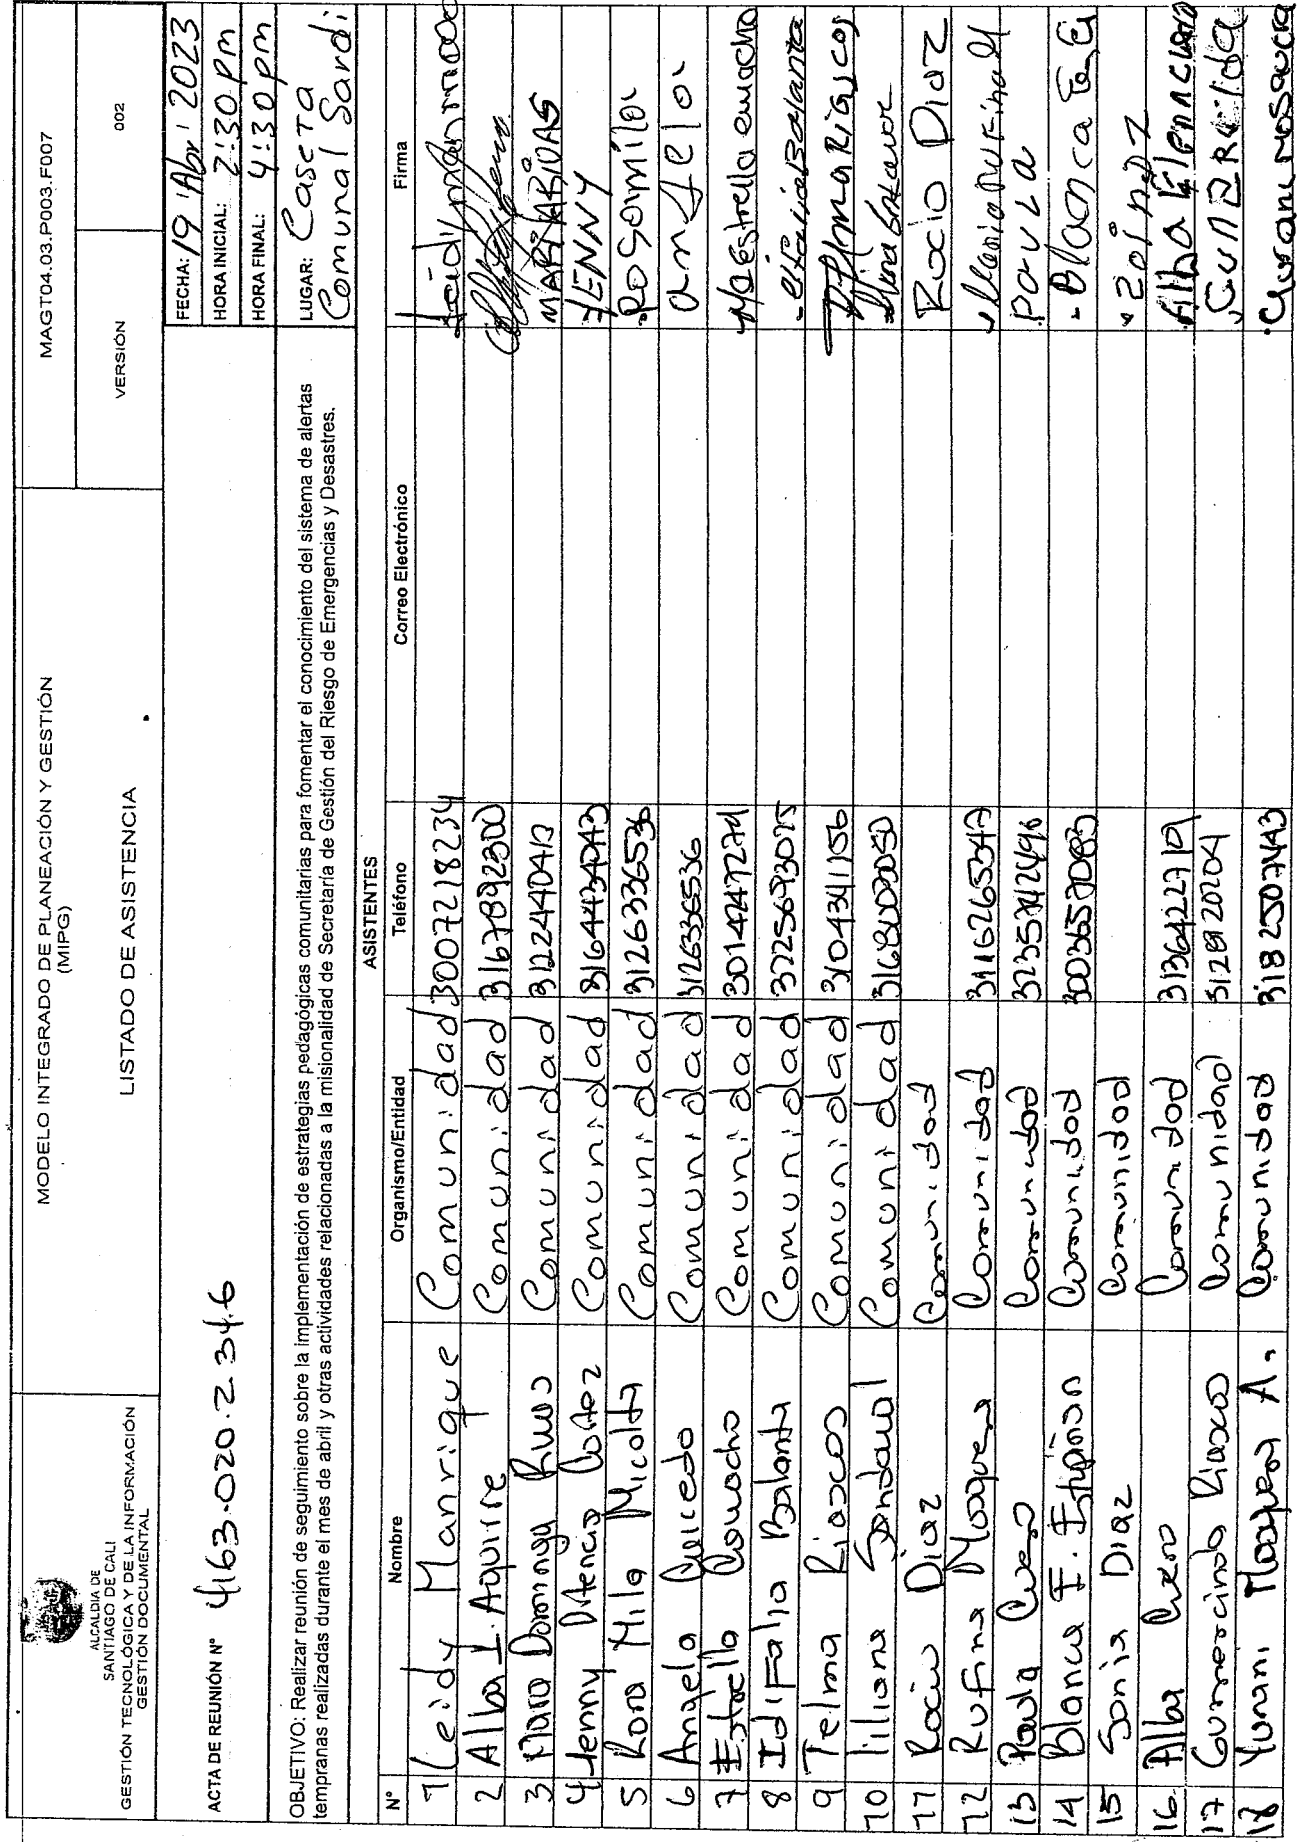 ALCALDÍA DE
SANTIAGO DE CALI
GESTIÓN TECNOLÓGICA Y DE LA INFORMACIÓN
GESTIÓN DOCUMENTAL
MODELO INTEGRADO DE PLANEACIÓN Y GESTIÓN
(MIPG)
LISTADO DE ASISTENCIA
MAGT04.03.P003.F007
VERSIÓN 002
ACTA DE REUNIÓN N° 4163.020.2.34.6
FECHA: 19 Abri 2023
HORA INICIAL: 2:30 pm
HORA FINAL: 4:30 pm
OBJETIVO: Realizar reunión de seguimiento sobre la implementación de estrategias pedagógicas comunitarias para fomentar el conocimiento del sistema de alertas
tempranas realizadas durante el mes de abril y otras actividades relacionadas a la misionalidad de Secretaría de Gestión del Riesgo de Emergencias y Desastres.
LUGAR: Caseta
Comunal Sardi
ASISTENTES
N° Nombre Organismo/Entidad Teléfono Correo Electrónico Firma
1 Leidy Manrique Comunidad 3007218234
2 Alba I. Aguirre Comunidad 3167892300
3 Comunidad 3122440413
4 Yenny Atencio Cortez Comunidad 3164434043 YENNY
5 Rosa Mila Micolta Comunidad 3126336536 Rosomila
6 Angela Quicedo Comunidad 312636536 angela
7 Estrella Camacho Comunidad 3014247274 estrella camacho
8 Idifalia Balanta Comunidad
9 Telma Riascos Comunidad 3104341156
10 Liliana Sandoval Comunidad
11 Rocio Diaz Comunidad Rocio Diaz
12 Rufina Mosquera Comunidad 3116265347
13 Paula Cuero Comunidad Paula
14 Blanca F. Estupiñan Comunidad 3003657083 Blanca
15 Sonia Diaz Comunidad
16 Alba Cuero Comunidad 3136422719 Alba
17 Gumercindo Riascos Comunidad 3128120204
18 Yurani Mosquera A. Comunidad 3182507443